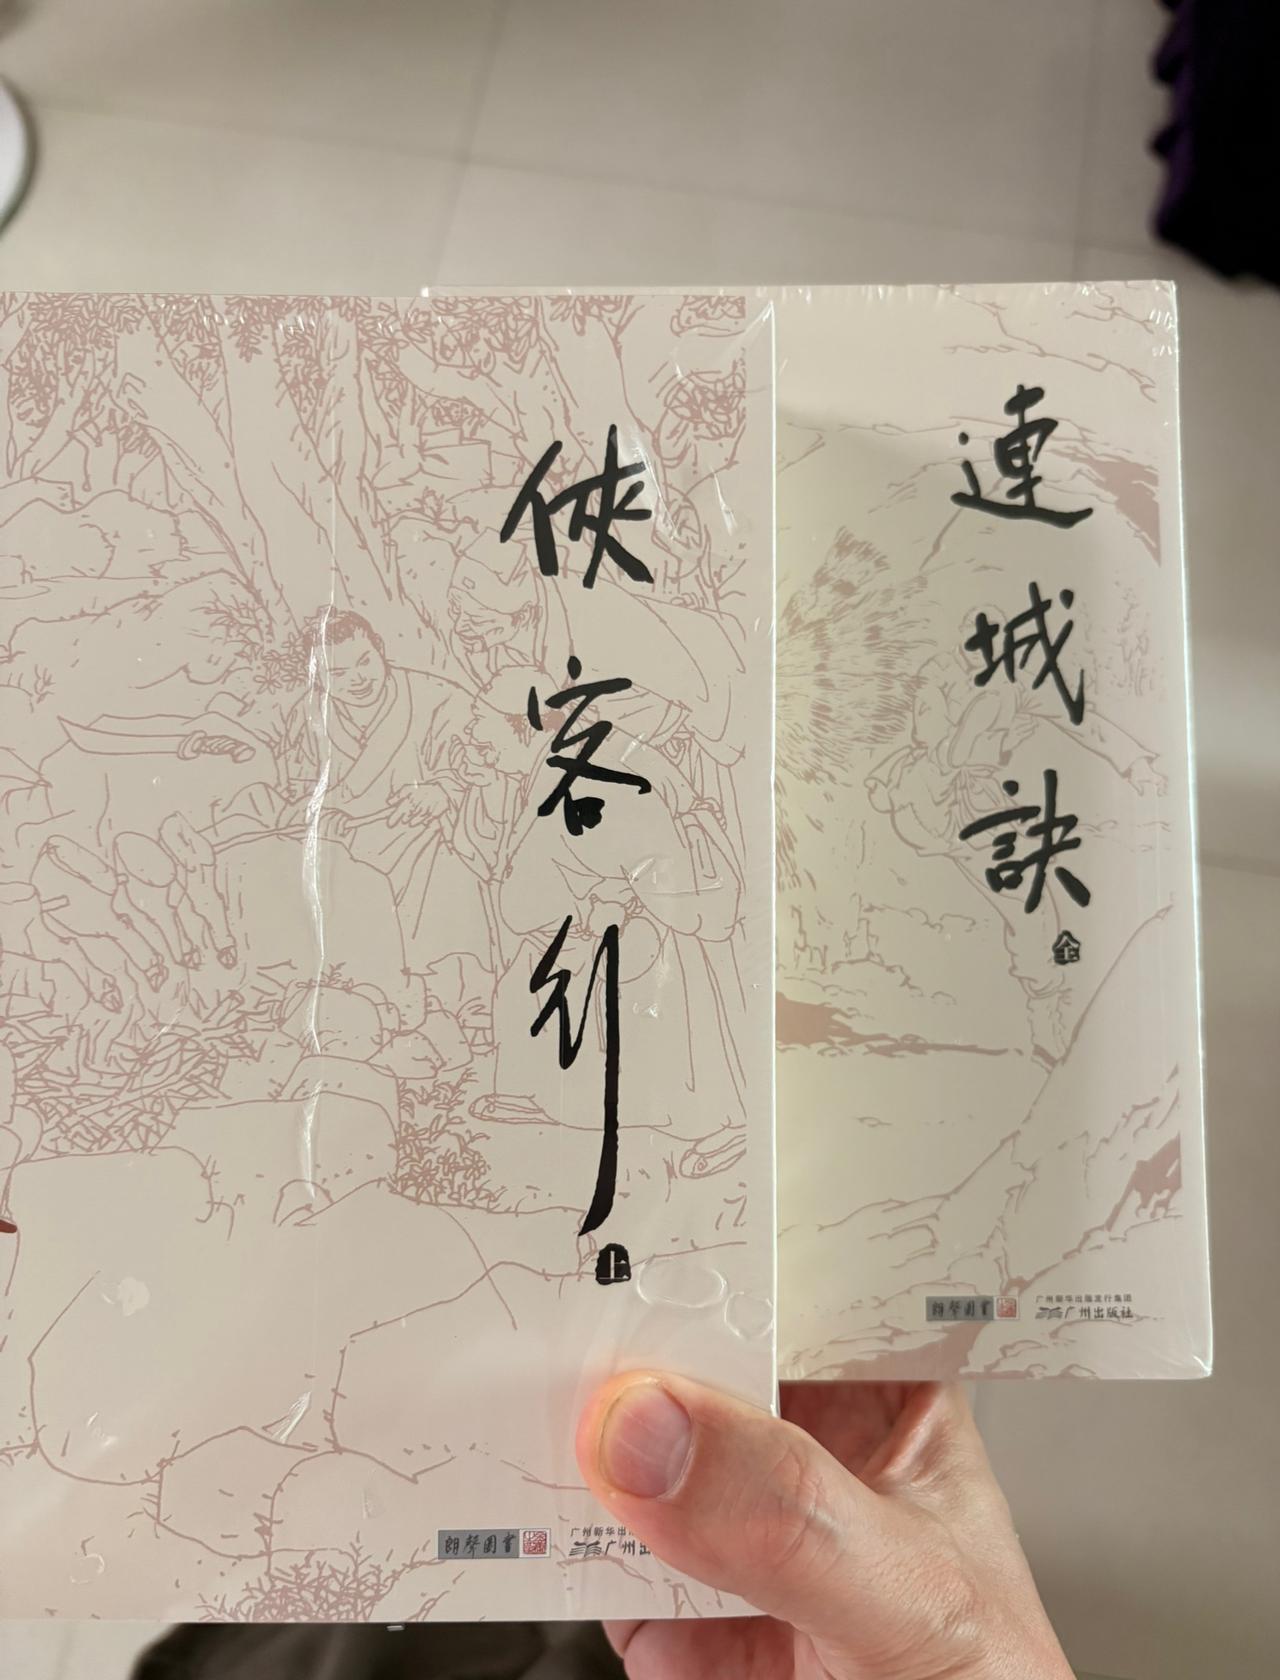 俠客行
上
朗聲圖書
广州新华出
广州出
連城訣
全
朗聲圖書
广州新华出版发行集团
广州出版社